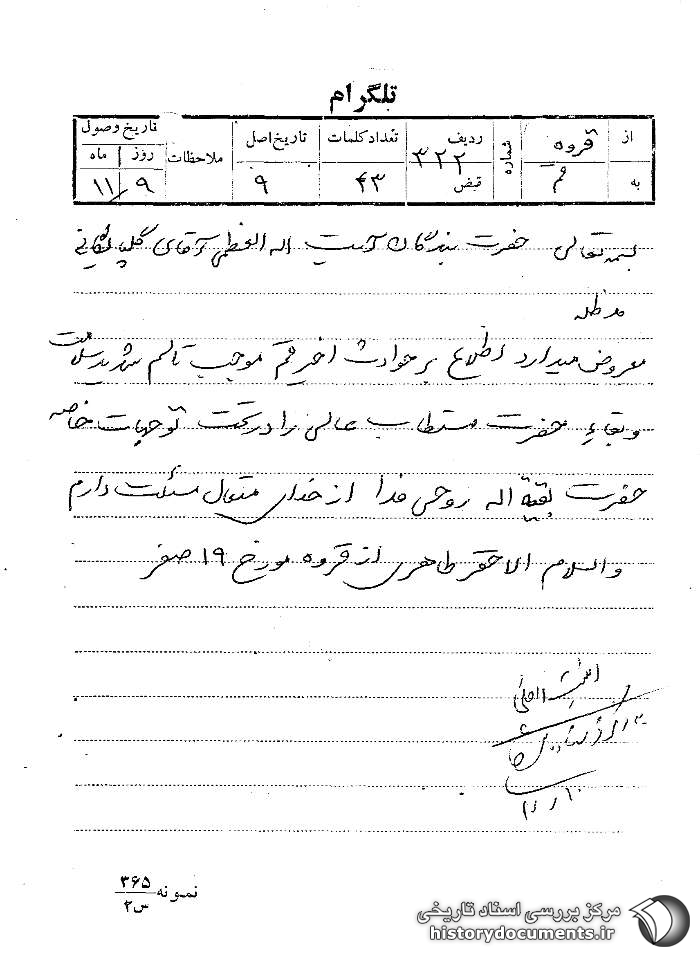 تلگرام
از قروه
به قم
شماره
ردیف ۳۲۲
قبض
تعداد کلمات
۴۳
تاریخ اصل
۹
ملاحظات
تاریخ وصول
روز ماه
۹ / ۱۱
بسمه تعالی حضرت بندگان آیت اله العظمی آقای گلپایگانی
مدظله
معروض میدارد اطلاع بر حوادث اخیر قم موجب تالم شدید سلامت
و بقاء حضرت مستطاب عالی را در تحت توجهات خاصه
حضرت بقیة اله روحی فدا از خدای متعال مسئلت دارم
والسلام الاحقر طاهری از قروه مورخ ۱۹ صفر
نمونه ۳۶۵
س۲
مرکز بررسی اسناد تاریخی
historydocuments.ir